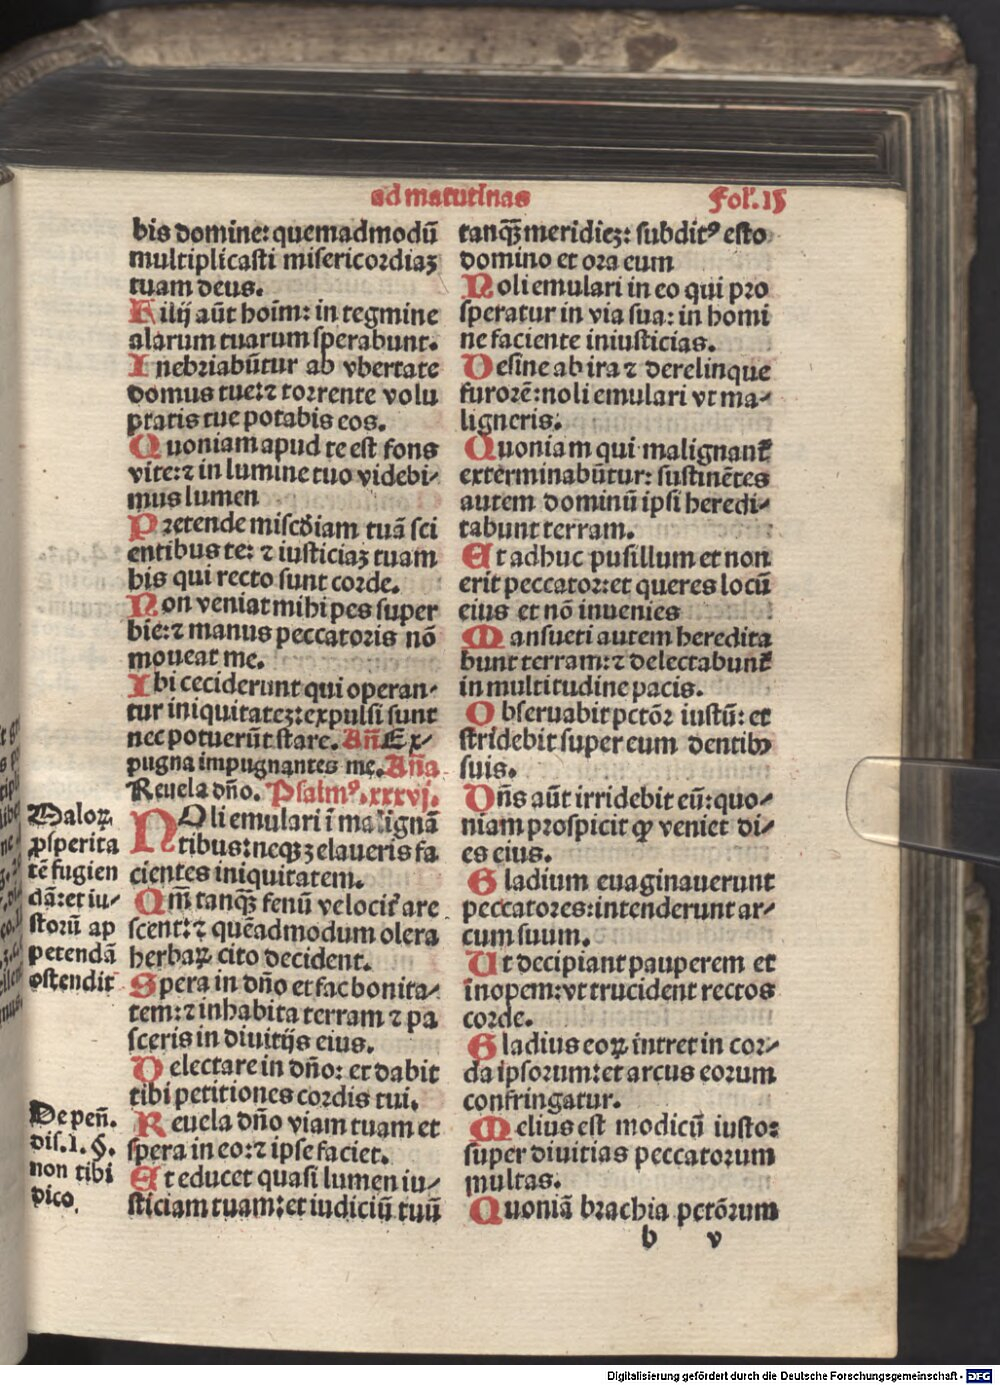 ad matutinas
Fol'. 15
bis domine: quemadmodū
multiplicasti misericordiaʒ
tuam deus.
Filij aūt hoim: in tegmine
alarum tuarum sperabunt.
Inebriabūtur ab vbertate
domus tue: ⁊ torrente volu
ptatis tue potabis eos.
Quoniam apud te est fons
vite: ⁊ in lumine tuo videbi-
mus lumen
Pretende misc̄diam tuā sci
entibus te: ⁊ iusticiaʒ tuam
his qui recto sunt corde.
Non veniat mihi pes super
bie: ⁊ manus peccatoris nō
moueat me.
Ibi ceciderunt qui operan-
tur iniquitateʒ: expulsi sunt
nec potuerūt stare. Añ. Ex-
pugna impugnantes me. Añа
Reuela dño. Psalmꝰ. xxxvj.
NOli emulari ī malignā
tibus: neqʒ zelaueris fa
cientes iniquitatem.
Qm̄ tanqʒ̄ fenū velocit̄ are
scent: ⁊ quēadmodum olera
herbaꝝ cito decident.
Spera in dño et fac bonita-
tem: ⁊ inhabita terram ⁊ pa
sceris in diuitijs eius.
Delectare in dño: et dabit
tibi petitiones cordis tui.
Reuela dño viam tuam et
spera in eo: ⁊ ipse faciet.
Et educet quasi lumen iu-
sticiam tuam: et iudiciū tuū
Maloꝝ
ꝓsperita
tē fugien
dā: et iu-
storū ap
petendā
ostendit
De peñ.
dis. 1. §.
non tibi
dico.
tanqʒ̄ meridieʒ: subditꝰ esto
domino et ora eum
Noli emulari in eo qui pro
speratur in via sua: in homi
ne faciente iniusticias.
Desine ab ira ⁊ derelinque
furorē: noli emulari vt ma-
ligneris.
Quoniam qui malignant̄
exterminabūtur: sustinētes
autem dominū ipsi heredi-
tabunt terram.
Et adhuc pusillum et non
erit peccator: et queres locū
eius et nō inuenies
Mansueti autem heredita
bunt terram: ⁊ delectabunt̄
in multitudine pacis.
Obseruabit pctōr iustū: et
stridebit super eum dentibꝰ
suis.
Dñs aūt irridebit eū: quo-
niam prospicit ꝙ veniet di-
es eius.
Gladium euaginauerunt
peccatores: intenderunt ar-
cum suum.
Ut decipiant pauperem et
inopem: vt trucident rectos
corde.
Gladius eoꝝ intret in cor-
da ipsorum: et arcus eorum
confringatur.
Melius est modicū iusto:
super diuitias peccatorum
multas.
Quoniā brachia pctōrum
b v
Digitalisierung gefördert durch die Deutsche Forschungsgemeinschaft - DFG